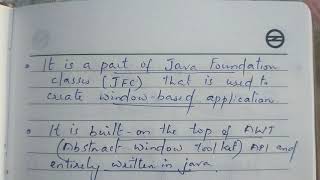 • It is a part of Java Foundation
classes (JFC) that is used to
create window-based application
• It is built-on the top of AWT
(Abstract window toolkit) API and
entirely written in java.